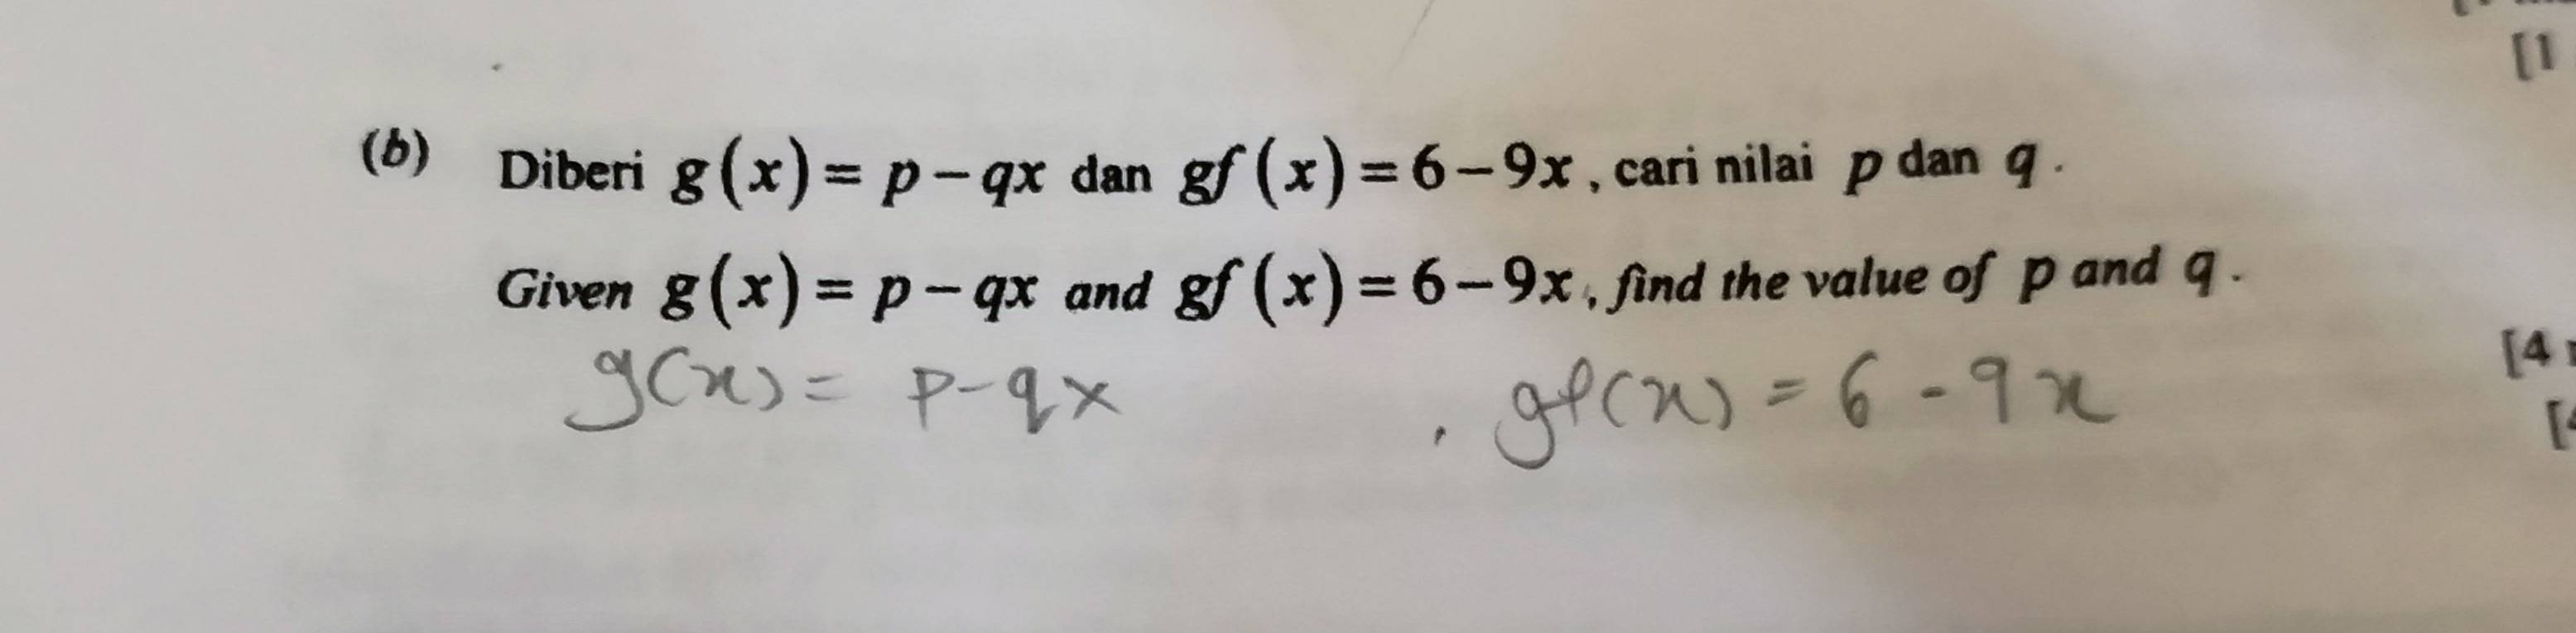 [1
(b) Diberi g(x) = p − qx dan gf (x) = 6 − 9x , cari nilai p dan q .
Given g(x) = p − qx and gf (x) = 6 − 9x , find the value of p and q .
[4
g(x) = p - qx , gf(x) = 6 - 9x